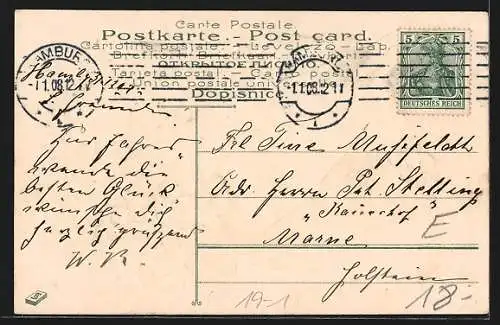 Carte Postale.
Postkarte. - Post card.
Cartolina postale. - Levelező-Lap.
Briefkort - Brevkort
ОТКРЫТОЕ ПИСЬМО
Tarjeta postal. - Cartão postal
Union postale univ
Dopisnice
HAMBURG
1.1.08.12
HAMBURG
1.1.08.12
5 5
DEUTSCHES REICH
Hamburg
L.
Zur Jahres-
wende die
besten Glück
wünsche Dir
W. R.
Frl. Tine
Adr. Herrn Pet. Stelling
"Kaiserhof"
Marne
Holstein
E
19-1
18.-